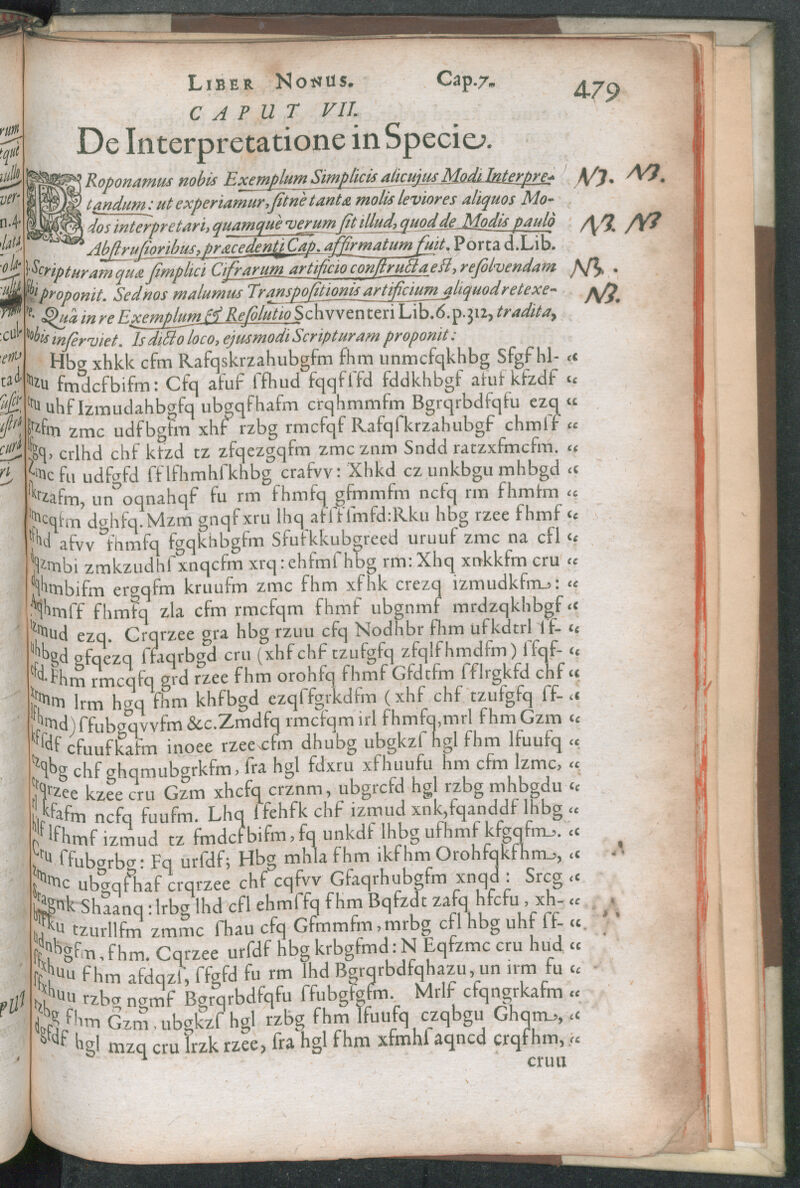 LIBER NONUS. Cap.7. 479
CAPUT VII.
De Interpretatione in Specie.
PRoponamus nobis Exemplum Simplicis alicujus Modi Interpre-
tandum: ut experiamur, sitnè tantæ molis leviores aliquos Mo-
dos interpretari, quamquè verum sit illud, quod de Modis paulò
Abstrusioribus, præcedenti Cap. affirmatum fuit. Porta d. Lib.
Scripturam quæ simplici Cifrarum artificio constructa est, resolvendam
proponit. Sed nos malumus Transpositionis artificium aliquod retexe-
re. Quâ in re Exemplum & Resolutio Schvventeri Lib.6.p.312, tradita,
nobis inserviet. Is dicto loco, ejusmodi Scripturam proponit:
Hbg xhkk cfm Rafqskrzahubgfm fhm unmcfqkhbg Sfgf hl- “
fmdcfbifm: Cfq afuf ffhud fqqfffd fddkhbgf afuf kfzdf “
uhf Izmudahbgfq ubgqfhafm crqhmmfm Bgrqrbdfqfu ezq “
zmc udfbgfm xhf rzbg rmcfqf Rafqfkrzahubgf chmff “
crlhd chf kfzd tz zfqezgqfm zmc znm Sndd ratzxfmcfm. “
fu udfgfd fflfhmhfkhbg crafvv: Xhkd cz unkbgu mhbgd “
un oqnahqf fu rm fhmfq gfmmfm ncfq rm fhmfm “
dghfq. Mzm gnqf xru lhq afffmfd: Rku hbg rzee fhmf “
afvv fhmfq fgqkhbgfm Sfufkkubgreed uruuf zmc na cfl “
zmkzudhf xnqcfm xrq: ehfmf hbg rm: Xhq xnkkfm cru “
ergqfm kruufm zmc fhm xfhk crezq izmudkfm: “
fhmfq zla cfm rmcfqm fhmf ubgnmf mrdzqkhbgf “
ezq. Crqrzee gra hbg rzuu cfq Nodhbr fhm ufkdtrl ff- “
gfqezq ffaqrbgd cru (xhf chf tzufgfq zfqlfhmdfm) ffqf- “
Fhm rmcqfq grd rzee fhm orohfq fhmf Gfdtfm fflrgkfd chf “
lrm hgq fhm khfbgd ezqffgrkdfm (xhf chf tzufgfq ff- “
ffubgqvvfm &c. Zmdfq rmcfqm irl fhmfq, mrl fhm Gzm “
cfuufkafm inoee rzee cfm dhubg ubgkzf hgl fhm lfuufq “
chf ghqmubgrkfm, fra hgl fdxru xfhuufu hm cfm lzmc, “
kzee cru Gzm xhcfq crznm, ubgrcfd hgl rzbg mhbgdu “
ncfq fuufm. Lhq ffehfk chf izmud xnk, fqanddf lhbg “
lfhmf izmud tz fmdcfbifm, fq unkdf lhbg ufhmf kfgqfm. “
ffubgrbg: Fq urfdf; Hbg mhla fhm ikfhm Orohfqkfhm, “
ubgqfhaf crqrzee chf cqfvv Gfaqrhubgfm xnqd: Srcg “
Shaanq: lrbg lhd cfl ehmffq fhm Bqfzdt zafq hfcfu, xh- “
tzurllfm zmmc fhau cfq Gfmmfm, mrbg cfl hbg uhf ff- “
fhm. Cqrzee urfdf hbg krbgfmd: N Eqfzmc cru hud “
fhm afdqzf, ffgfd fu rm lhd Bgrqrbdfqhazu, un irm fu “
rzbg ngmf Bgrqrbdfqfu ffubgfgfm. Mrlf cfqngrkafm “
fhm Gzm, ubgkzf hgl rzbg fhm lfuufq czqbgu Ghqm, “
hgl mzq cru lrzk rzee, fra hgl fhm xfmhf aqncd crqfhm, “
cruu